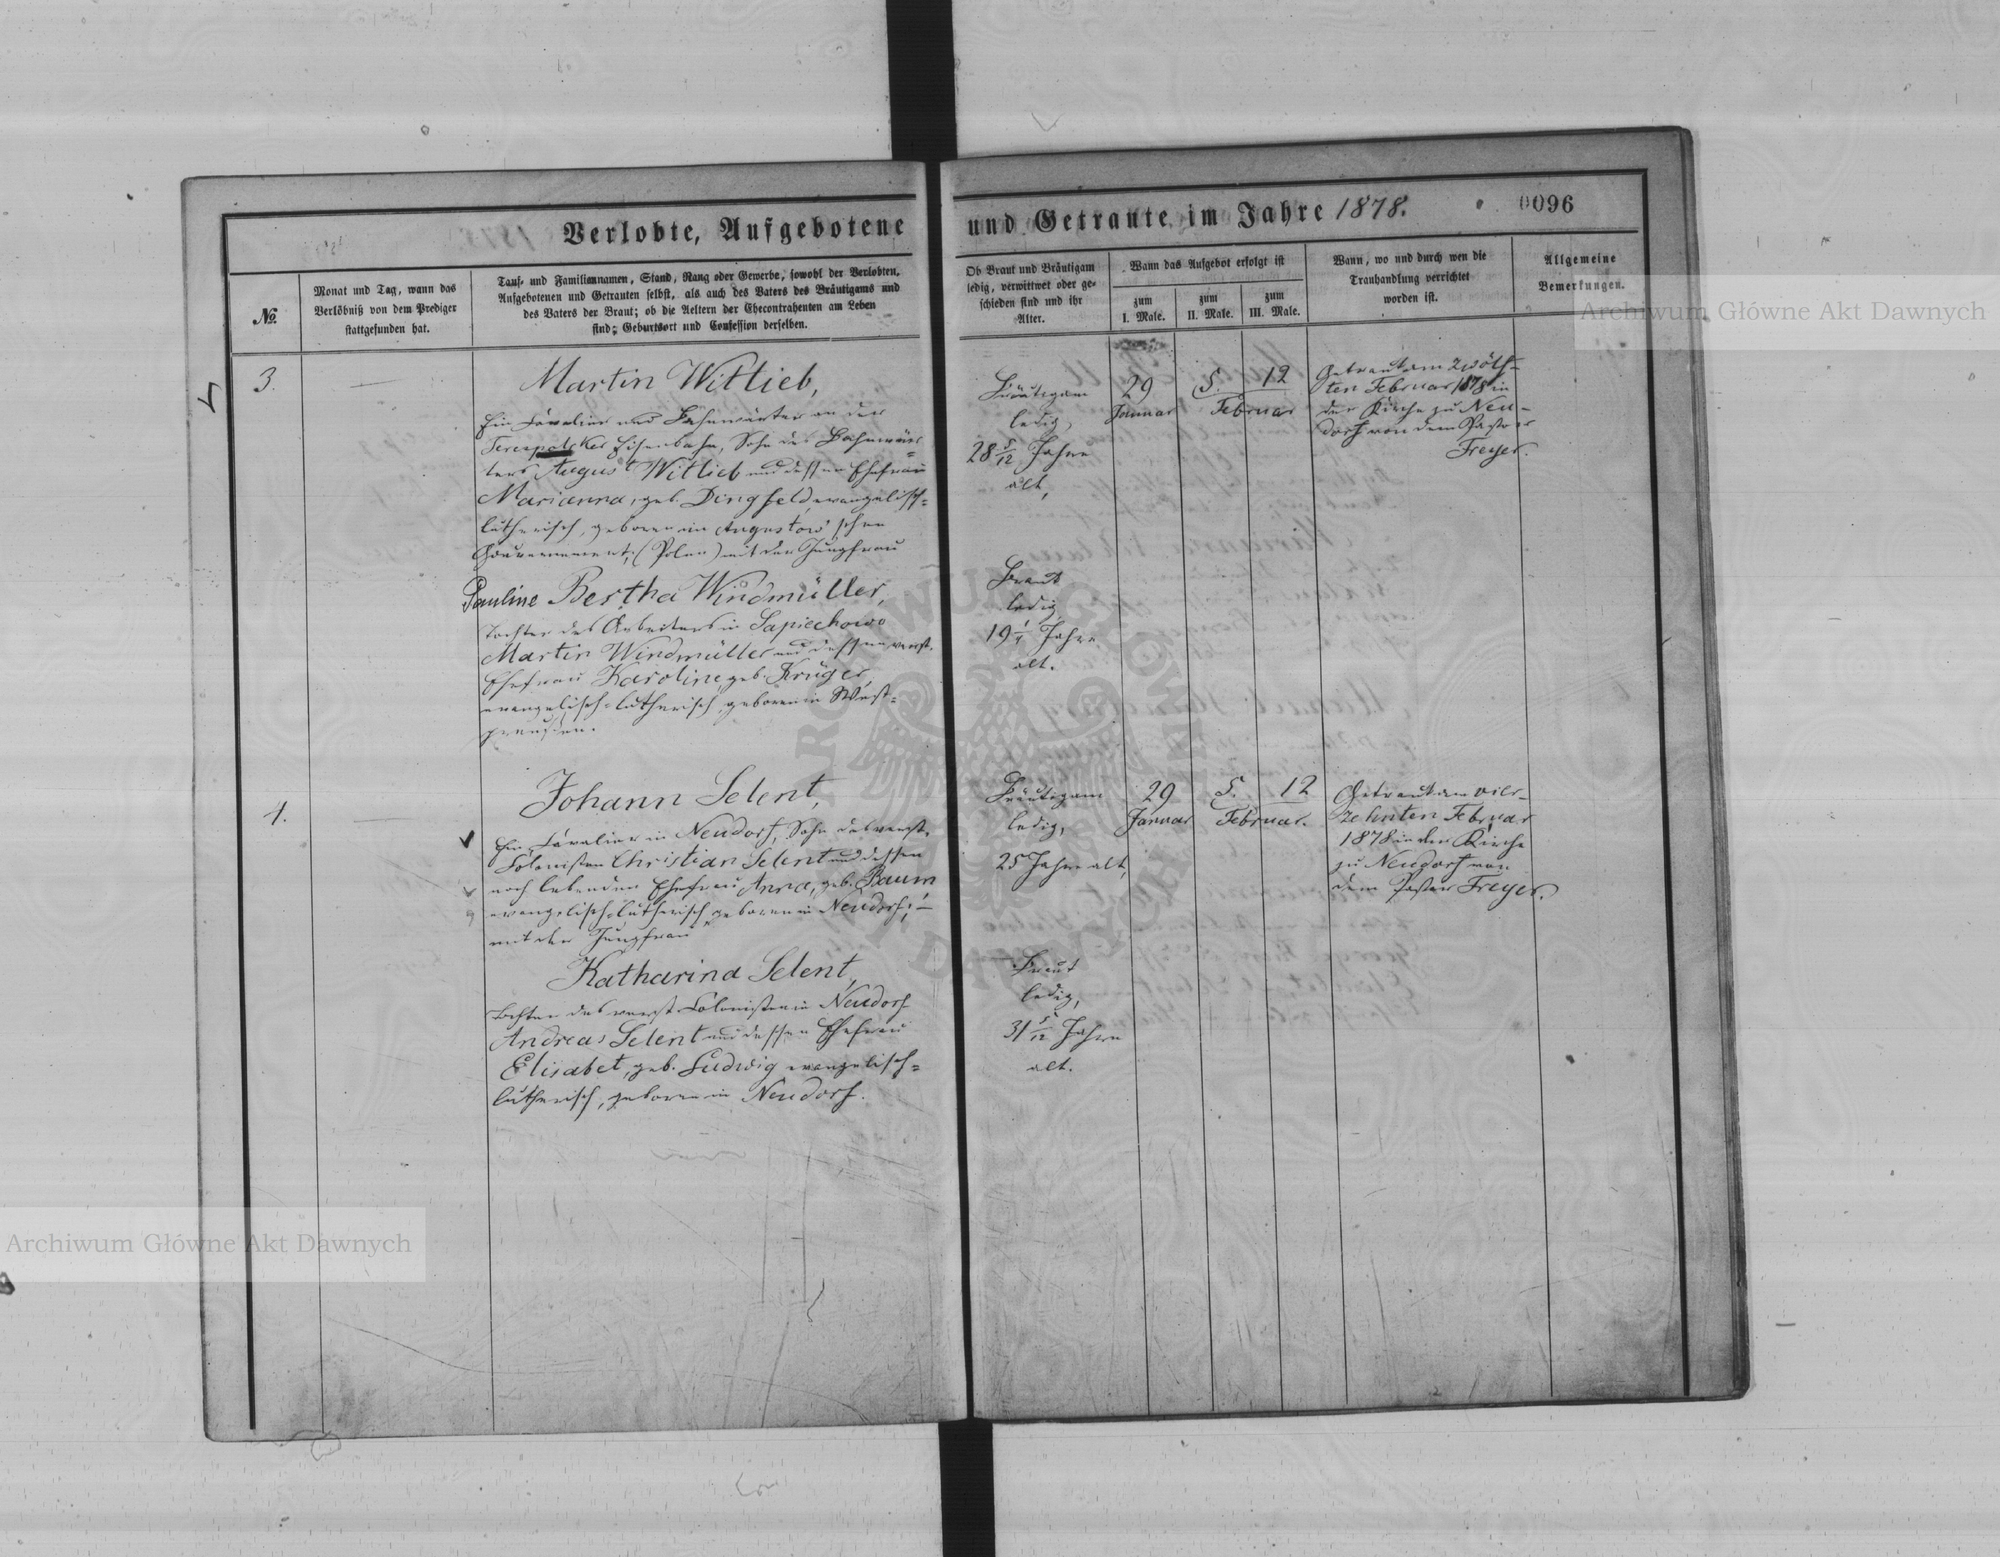 Verlobte, Aufgebotene und Getraute im Jahre 1878.
0096
№.
Monat und Tag, wann das
Verlöbniß von dem Prediger
stattgefunden hat.
Tauf- und Familiennamen, Stand, Rang oder Gewerbe, sowohl der Verlobten,
Aufgebotenen und Getrauten selbst, als auch des Vaters des Bräutigams und
des Vaters der Braut; ob die Aeltern der Ehecontrahenten am Leben
sind; Geburtsort und Confession derselben.
Ob Braut und Bräutigam
ledig, verwittwet oder ge-
schieden sind und ihr
Alter.
Wann das Aufgebot erfolgt ist
zum
I. Male.
zum
II. Male.
zum
III. Male.
Wann, wo und durch wen die
Trauhandlung verrichtet
worden ist.
Allgemeine
Bemerkungen.
3.
Martin Witlieb,
und Bahnwärter an der
Eisenbahn, Sohn des Bahnwär=
ters August Witlieb und dessen Ehefrau
Marianna, geb. Dingfeld, evangelisch=
lutherisch, geboren im Augustow'schen
Gouvernement, (Polen) mit der Jungfrau
Pauline Bertha Windmüller,
Tochter des Arbeiters in Sapiechowo
Martin Windmüller und dessen verst.
Ehefrau Karoline, geb. Krüger,
evangelisch=lutherisch, geboren in West=
preußen.
Bräutigam
ledig,
28 5/12 Jahre
alt,
Braut
ledig,
19 Jahre
alt.
29
Januar
5. 12
Februar
Getraut am zwölf-
ten Februar 1878 in
der Kirche zu Neu-
dorf von dem Pastor
Freyer.
4.
Johann Selent,
in Neudorf, Sohn des verst.
Colonisten Christian Selent und dessen
noch lebenden Ehefrau Anna, geb. Baum
evangelisch-lutherisch, geboren in Neudorf; –
mit der Jungfrau
Katharina Selent,
Tochter des verst. Colonisten in Neudorf
Andreas Selent und dessen Ehefrau
Elisabet, geb. Ludwig evangelisch=
lutherisch, geboren in Neudorf.
Bräutigam
ledig,
25 Jahre alt,
Braut
ledig,
31 5/12 Jahre
alt.
29
Januar
5. 12
Februar.
Getraut am vier-
zehnten Februar
1878 in der Kirche
zu Neudorf von
dem Pastor Freyer.
Archiwum Główne Akt Dawnych
Archiwum Główne Akt Dawnych
ARCHIWUM GŁÓWNE AKT DAWNYCH